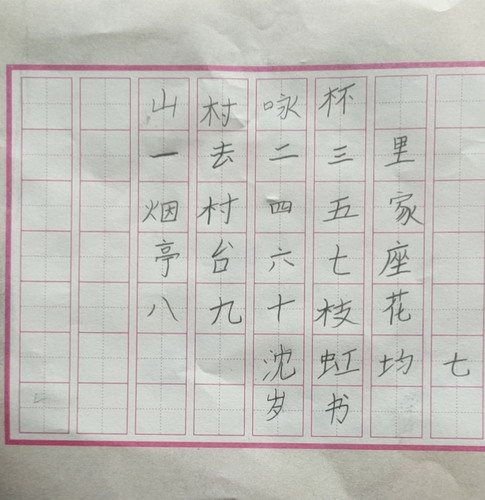 山村咏杯
一去二三里
烟村四五家
亭台六七座
八九十枝花
沈虹均七
岁书